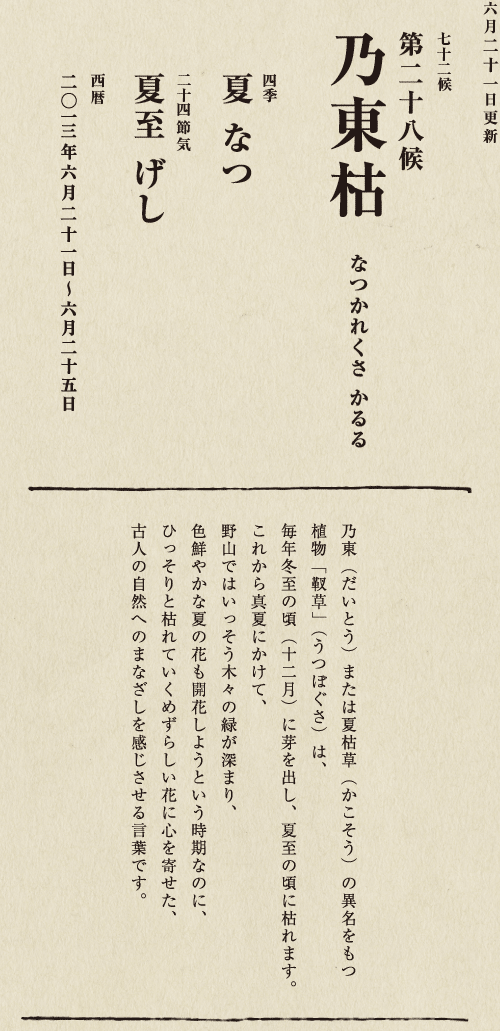 六月二十一日更新
七十二候
第二十八候
乃東枯 なつかれくさ かるる
四季
夏 なつ
二十四節気
夏至 げし
西暦
二〇一三年六月二十一日〜六月二十五日
乃東（だいとう）または夏枯草（かこそう）の異名をもつ
植物「靫草」（うつぼぐさ）は、
毎年冬至の頃（十二月）に芽を出し、夏至の頃に枯れます。
これから真夏にかけて、
野山ではいっそう木々の緑が深まり、
色鮮やかな夏の花も開花しようという時期なのに、
ひっそりと枯れていくめずらしい花に心を寄せた、
古人の自然へのまなざしを感じさせる言葉です。